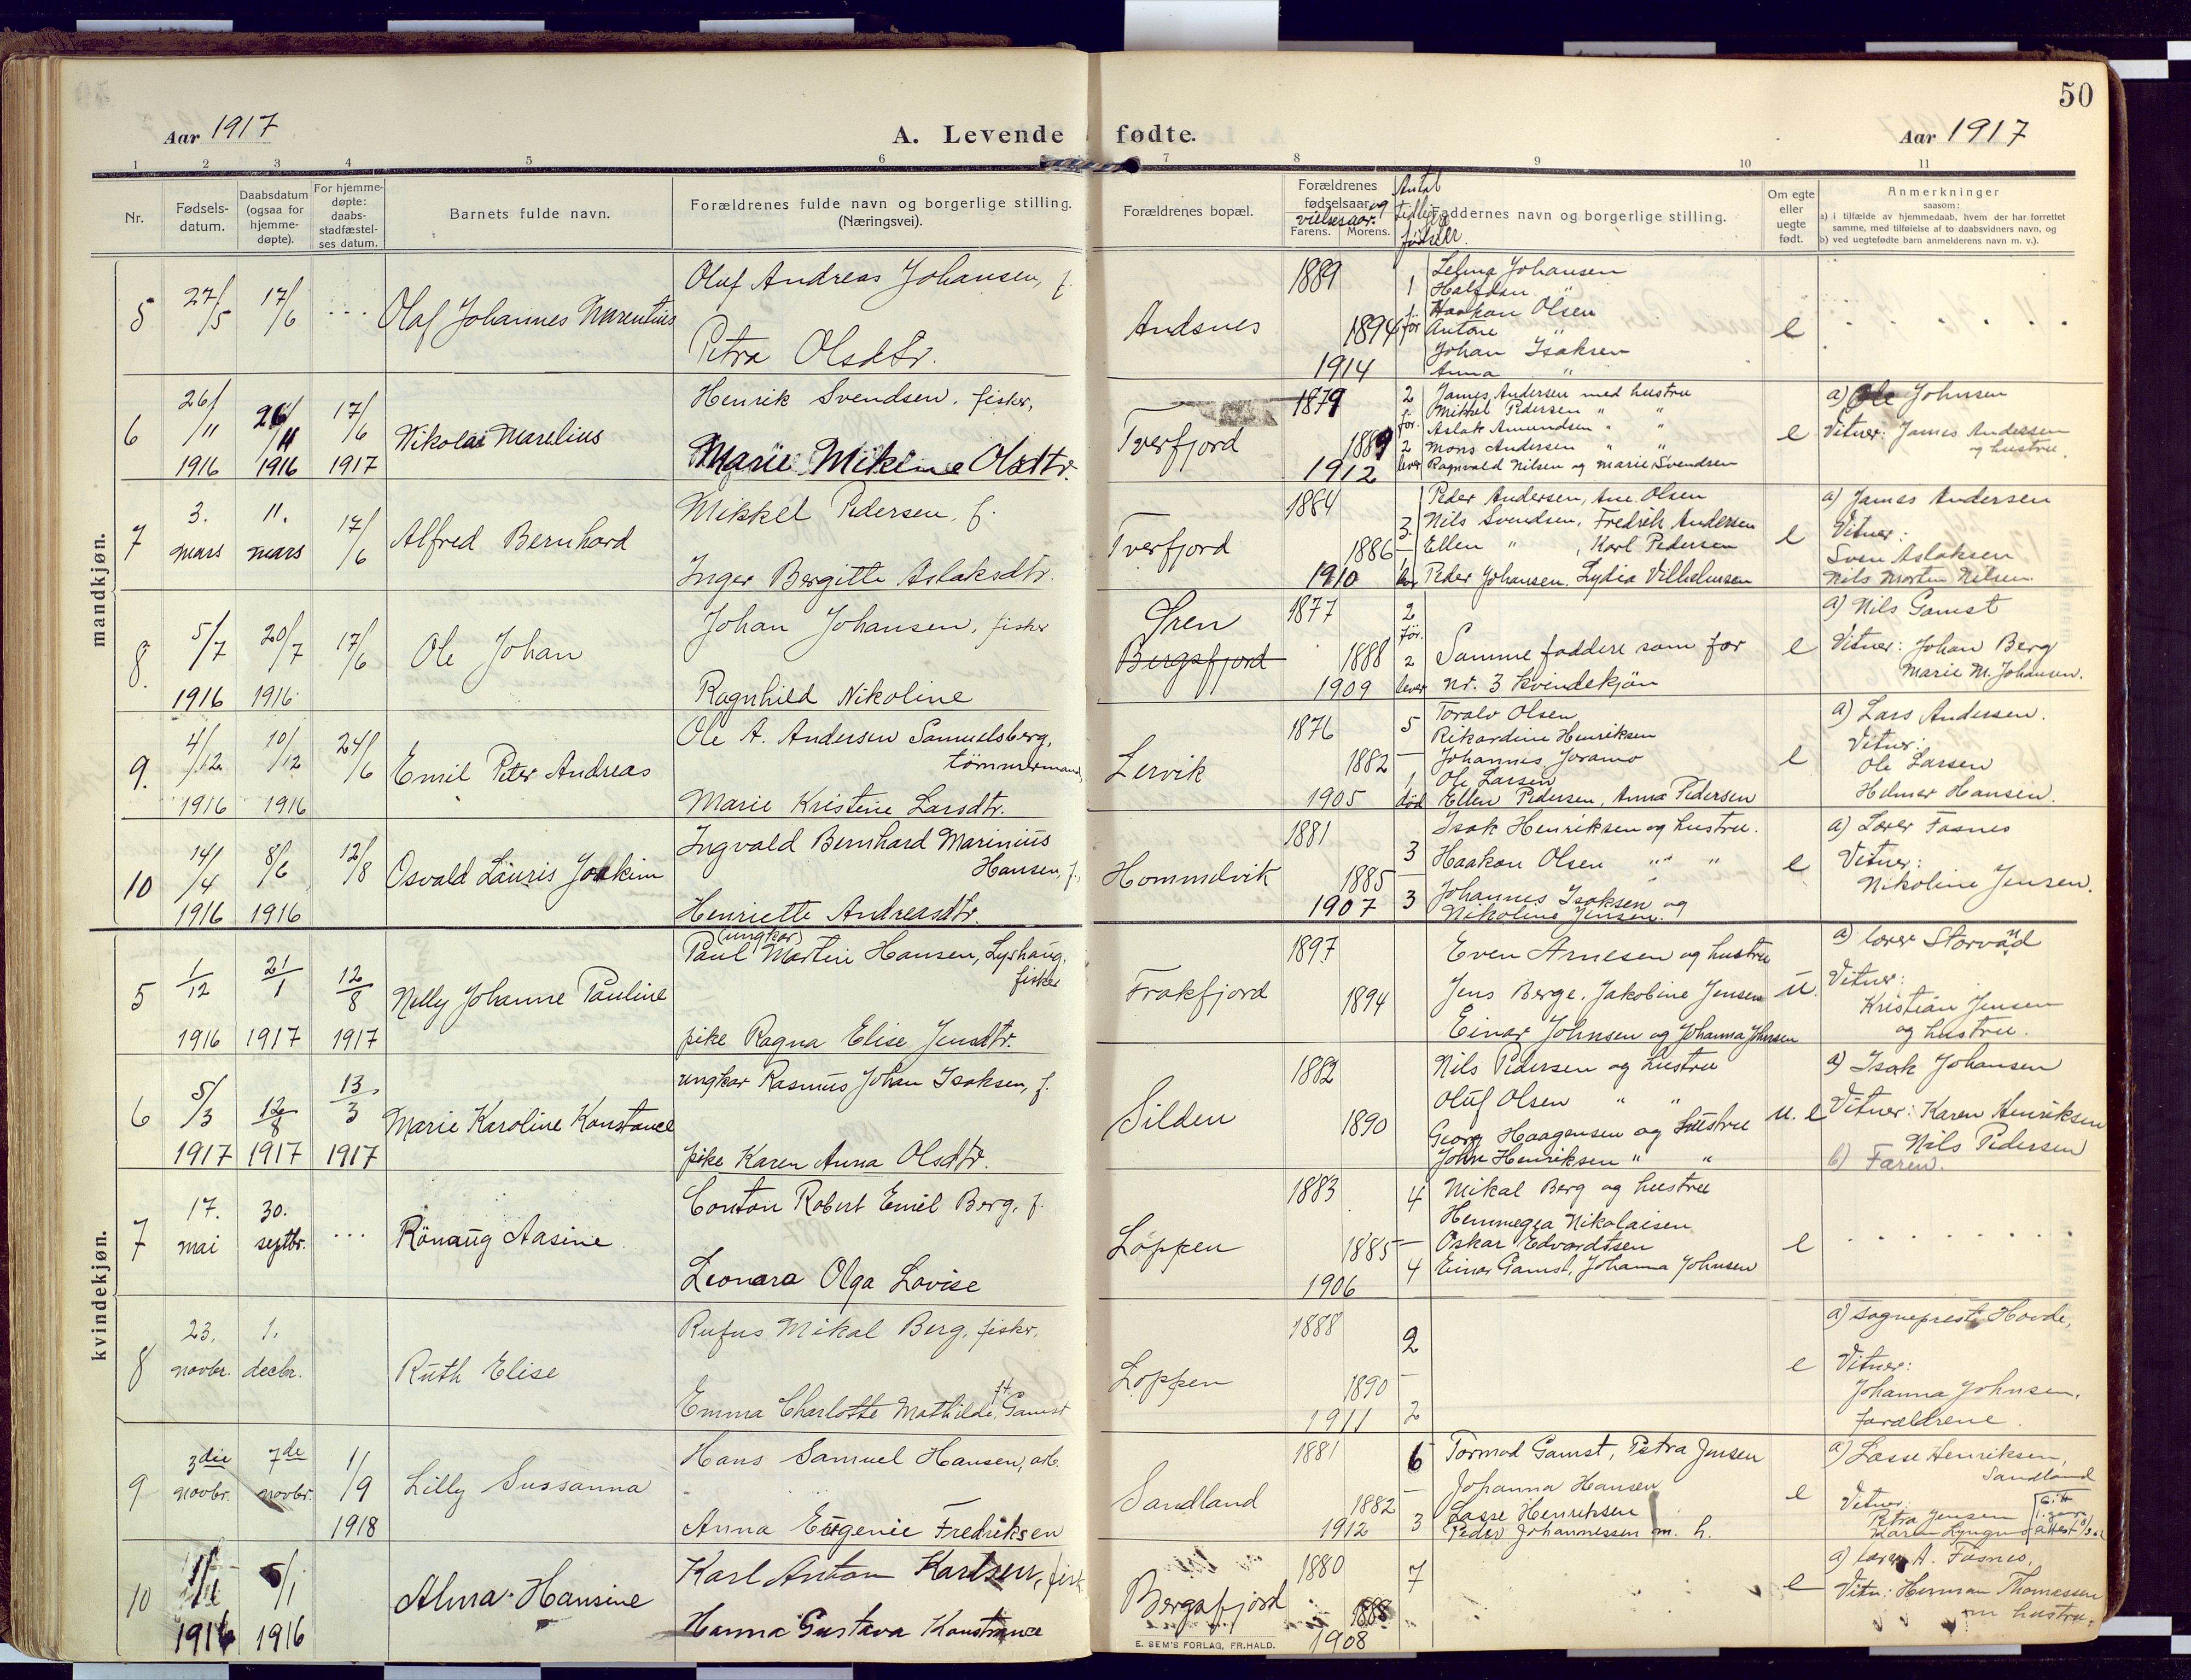 50
Aar 1917
A. Levende fødte.
Aar 1917
1 2 3 4 5 6 7 8 9 10 11
Nr.
Fødsels-
datum.
Daabsdatum
(ogsaa for
hjemme-
døpte).
For hjemme-
døpte:
daabs-
stadfæstel-
ses datum.
Barnets fulde navn.
Forældrenes fulde navn og borgerlige stilling.
(Næringsvei).
Forældrenes bopæl.
Forældrenes
fødselsaar og
vielsesaar.
Farens. Morens.
Antal
tidligere
fødsler.
Faddernes navn og borgerlige stilling.
Om egte
eller
uegte
født.
Anmerkninger
saasom:
a) i tilfælde av hjemmedaab, hvem der har forrettet
samme, med tilføielse af to daabsvidners navn, og
b) ved uegtefødte barn anmelderens navn m. v.).
mandkjøn.
5
27/5
17/6
...
Olaf Johannes Marentius
Oluf Andreas Johansen, f.
Petra Olsdtr.
Andsnes
1889
1894
1914
1
1 før
Selma Johansen
Halfdan "
Haakon Olsen
Antone "
Johan Isaksen
Anna "
e
6
26/11
1916
26/11
1916
17/6
1917
Nikolai Marelius
Henrik Svendsen, fisker,
Marie Mikline Olsdtr.
Tverfjord
1879
1889
1912
2
før.
2
lever
James Andersen med hustru
Mikkel Pedersen " "
Aslak Amundsen " "
Mons Andersen " "
Ragnvald Nilsen og Marie Svendsen
e
a) Ole Johnsen
Vitner: James Andersen
og hustru.
7
3.
mars
11.
mars
17/6
Alfred Bernhard
Mikkel Pedersen, f.
Inger Bergitte Aslaksdtr.
Tverfjord
1884
1886
1910
3
Peder Andersen, Ane Olsen
Nils Svendsen, Fredrik Andersen
Ellen ", Karl Pedersen
Peder Johansen. Lydia Vilhelmsen
e
a) James Andersen
Vitner:
Sven Aslaksen
Nils Morten Nilsen.
8.
5/7
1916
20/7
1916
17/6
Ole Johan
Johan Johansen, fisker
Ragnhild Nikoline
Øren
Bergsfjord
1877
1888
1909
2
før.
2
lever
Samme faddere som for
nr. 3 kvindekjøn
e
a) Nils Gamst
Vitner: Johan Berg
Marie M. Johansen.
9.
4/12
1916
10/12
1916
24/6
Emil Peter Andreas
Ole A. Andersen Samuelsberg,
tømmermand,
Marie Kristine Larsdtr.
Lervik
1876
1882
1905
5
1
død
Toralv Olsen
Rikardine Henriksen
Johannes Joramo
Ole Larsen
Ellen Pedersen, Anna Pedersen
e
a) Lars Andersen.
Vitner:
Ole Larsen
Helmer Hansen.
10
14/4
1916
8/6
1916
12/8
Osvald Lauris Joakim
Ingvald Bernhard Marinius
Hansen, f.,
Henriette Andreasdtr.
Hommelvik
1881
1885
1907
3
3
Isak Henriksen og hustru.
Haakon Olsen " "
Johannes Isaksen og
Nikoline Jensen.
e
a) Lærer Fosnes
Vitner:
Nikoline Jensen.
kvindekjøn.
5
1/12
1916
21/1
1917
12/8
1917
Nelly Johanne Pauline
(ungkar)
Paul Martin Hansen, Lyshaug,
fisker
pike Ragna Elise Jensdtr.
Frakfjord
1897
1894
Even Arnesen og hustru
Jens Berge, Jakobine Jensen
Einar Johnsen og Johanna Johnsen
u.
a) lærer Storvand
Vitner:
Kristian Jensen
og hustru.
6
5/3
1917
12/8
1917
13/3
1917
Marie Karoline Konstance
ungkar Rasmus Johan Isaksen, f.
pike Karen Anna Olsdtr.
Silden
1882
1890
Nils Pedersen og hustru
Oluf Olsen " "
Georg Haagensen og hustru
John Henriksen " "
u. e
a) Isak Johansen
Vitner: Karen Henriksen
Nils Pedersen
b) Faren.
7
17.
mai
30.
septbr.
...
Rönaug Aasine
Conton Robert Emil Berg, f.
Leonara Olga Lovise
Loppen
1883
1885
1906
4
4
Mikal Berg og hustru
Hemmegea Nikolaisen
Oskar Edvardtsen
Einar Gamst, Johanna Johnsen
e
8
23.
novbr.
1.
decbr.
Ruth Elise
Rufus Mikal Berg, fisker,
Emma Charlotte Mathilde, ft. Gamst
Loppen
1888
1890
1911
2
2
e
a) sogneprest Hovde,
Vitner:
Johanna Johnsen,
forældrene.
9
3die
novbr.
7de
novbr.
1/9
1918
Lilly Sussanna
Hans Samuel Hansen, arb.
Anna Eugenie Fredriksen
Sandland
1881
1882
1912
6
3
Tormod Gamst, Petra Jensen
Johanna Hansen
Lasse Henriksen
Peder Johannessen m. h.
e
a) Lasse Henriksen,
Sandland
Vitner:
Petra Jensen
Karen Lyngmo
attest
10
1916
5/1
1916
Alma Hansine
Karl Anton Karlsen, fisk
Hanna Gustava Konstance
Bergsfjord
1880
1888
1908
7
e
a) lærer A. Fosnes,
Vitn: Herman Thomassen
m hustru.
E. SEM'S FORLAG, FR.HALD.